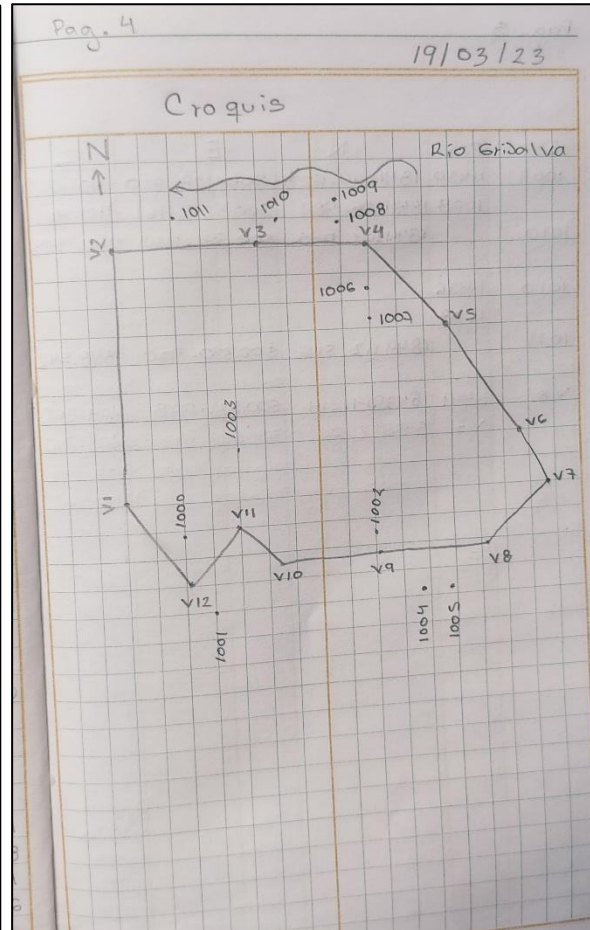 Pag. 4
19/03/23
Croquis
→ N
Rio Grijalva
1011
1010
1009
1008
V2
V3
V4
1006
1007
V5
1003
V6
V7
V1
1000
V11
1002
V10
V9
V8
V12
1001
1004
1005